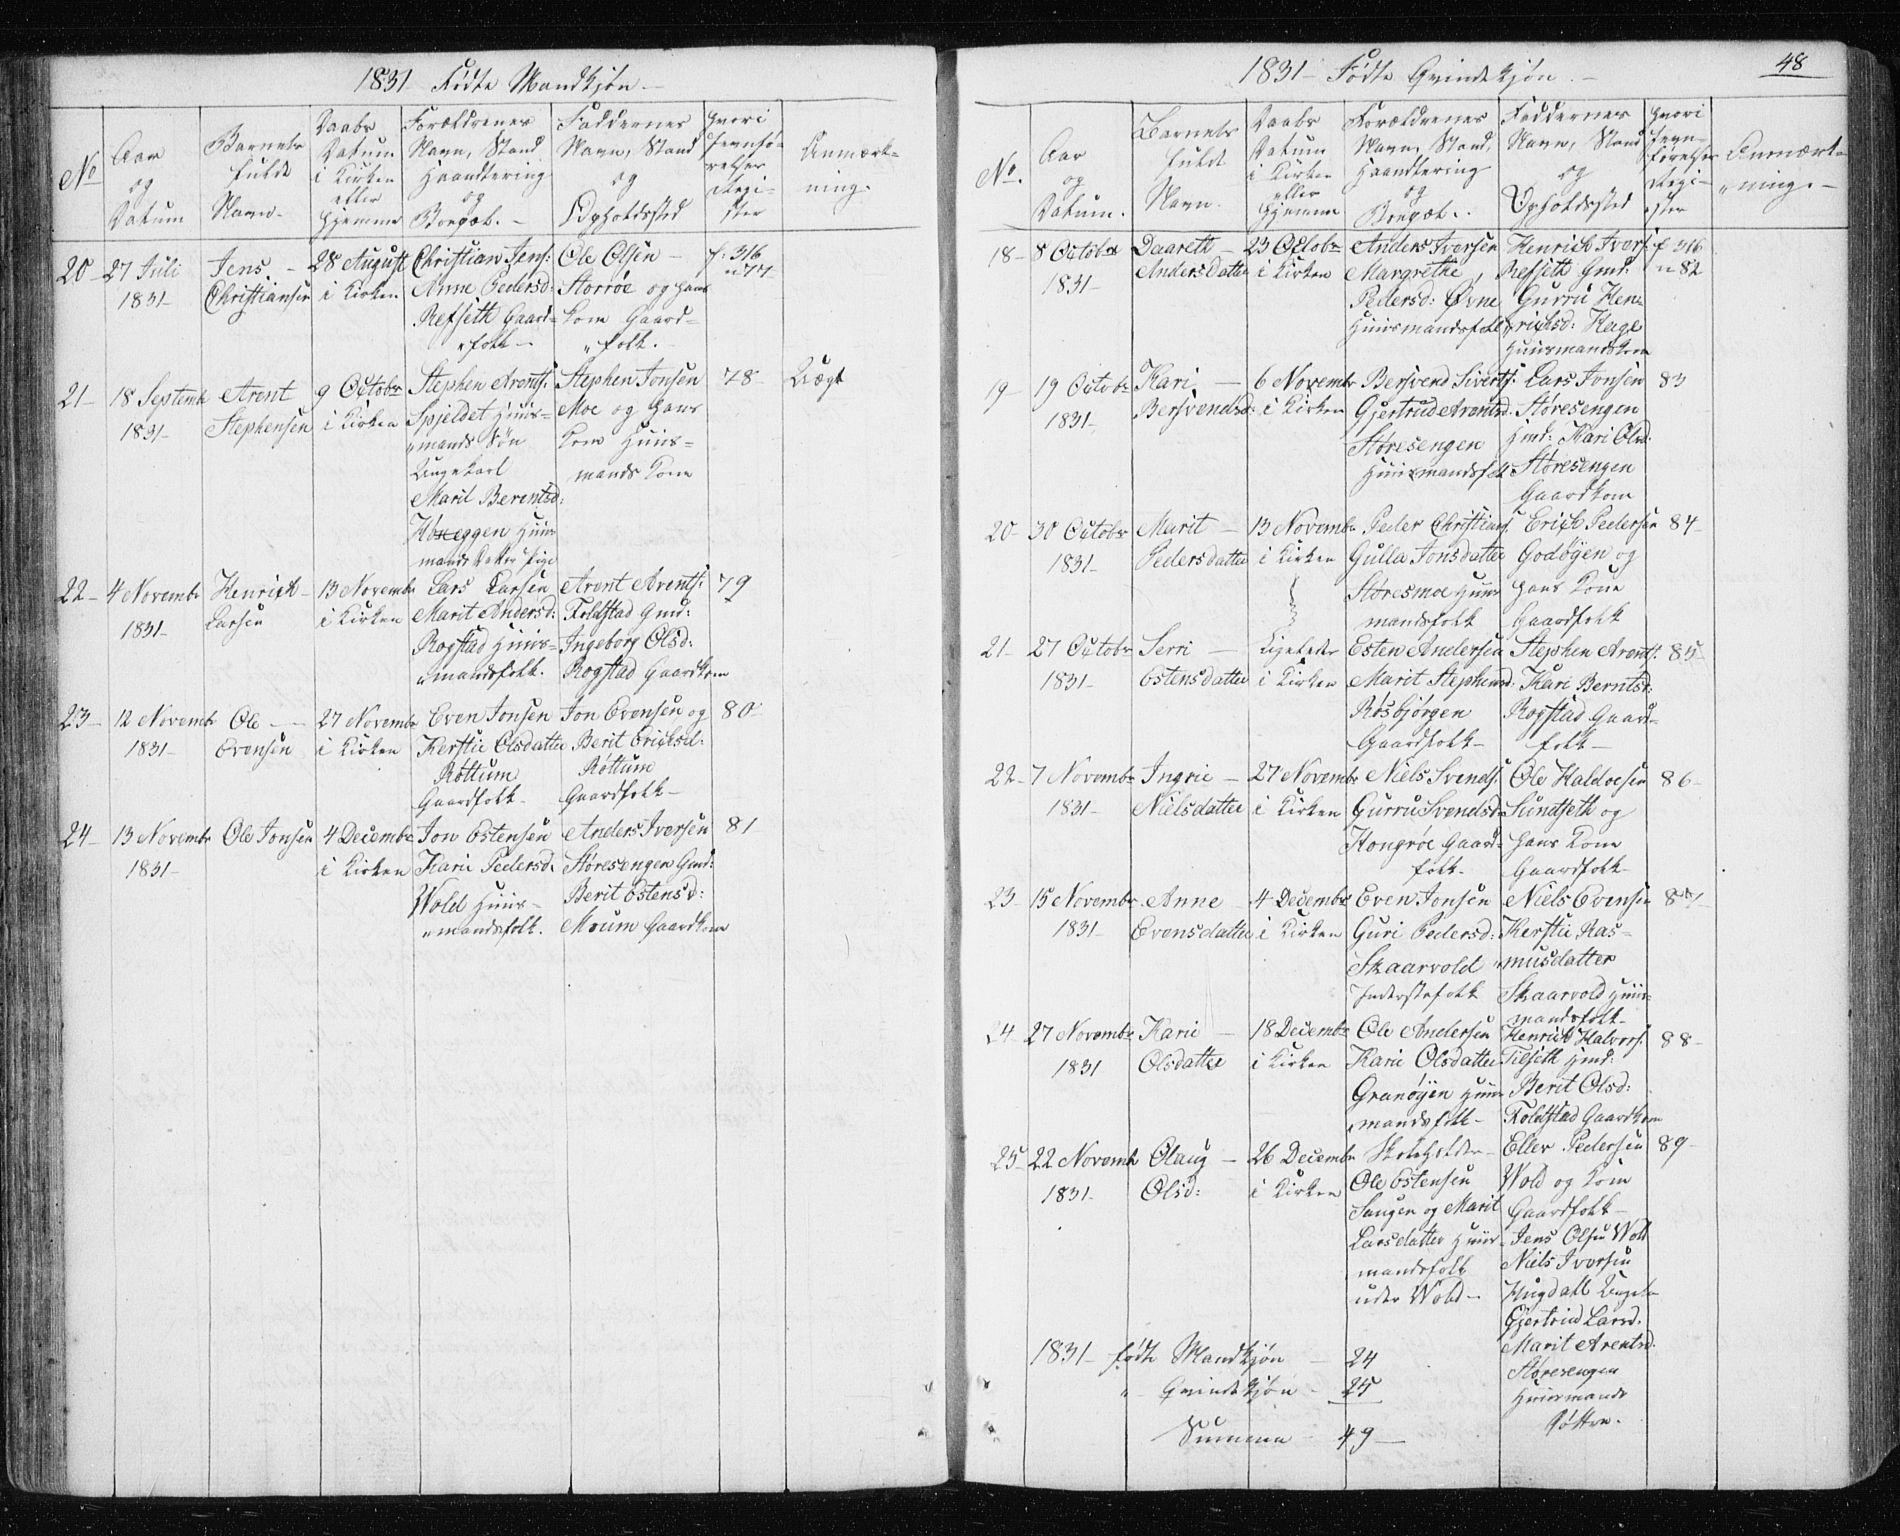 1831 Fødte Mandkjøn.
No
Aar
og
Datum
Barnets
fulde
Navn.
Daabs
Datum
i Kirken
eller
hjemme
Forældrenes
Navn, Stand
Haandtering
og
Boepæl.
Faddernes
Navn, Stand
og
Opholdssted
hvori
Jevnfø-
relses
Regi-
ster
Anmærk-
ning.
20 27 Juli
1831
Jens
Christiansen
28 August
i Kirken
Christian Jens:
Anne Pedersd:
Refseth Gaard-
folk
Ole Olsen
Storrøe og hans
Kone Gaard-
folk.
f. 316
n 77
21 18 Septembr
1831
Arent
Stephensen
9 Octobr
i Kirken
Stephen Arents:
Spjeldet Huus-
mands Søn
Ungekarl
Marit Berentsd:
Hoxeggen Huus
mands Datter Pige
Stephen Jonsen
Moe og hans
Kone Huus-
mands Kone
78
Uægt
22 4 Novembr
1831
Henrich
Larsen
13 Novembr
i Kirken
Lars Larsen
Marit Andersd:
Rogstad Huus-
mandsfolk.
Arent Arents:
Foldstad Gmd:
Ingeborg Olsd:
Rogstad Gaardkone
79
23 12 Novembr
1831
Ole
Evensen
27 Novembr
i Kirken
Even Jonsen
Kerstie Olsdatter
Røttum
Gaardfolk
Jon Evensen og
Berit Ericksd:
Røttum
Gaardfolk
80
24 13 Novembr
1831
Ole Jonsen
4 Decembr
i Kirken
Jon Estensen
Karie Pedersd.
Wold Huus-
mandsfolk.
Anders Iversen
Støresengen Gmd:
Berit Estensd:
Moum Gaardkone
81
1831 Fødte Qvindekjøn.
48
No.
Aar
og
Datum.
Barnets
fulde
Navn.
Daabs
Datum
i Kirken
eller
hjemme
Forældrenes
Navn, Stand,
Haandtering
og
Boepæl.
Faddernes
Navn, Stand
og
Opholdssted
hvori
Jevn-
førelses
Regi-
ster
Anmærk-
ning.
18 8 Octobr
1831
Daarett
Andersdatter
23 Octobr
i Kirken
Anders Iversen
Margrethe
Pedersd: Øvne
Huusmandsfolk
Henrich Ivers:
Refseth Gmd:
Gurru Hen-
richsd: Hage
Huusmandskone
f 316
n 82
19 19 Octobr
1831
Kari
Bersvendsd:
6 Novembr
i Kirken
Bersvend Siverts:
Gjertrud Arentsd.
Støresengen
Huusmandsfolk
Lars Jonsen
Støresengen
Hmd: Kari Olsd:
Støresengen
Gaardkone
83
20 30 Octobr
1831
Marit
Pedersdatter
13 Novembr
i Kirken
Peder Christians:
Gulla Jonsdatter
Støresmoe Huus
mandsfolk
Erich Pedersen
Godøyen og
hans Kone
Gaardfolk
84
21 27 Octobr
1831
Serri
Estensdatter
Ligeledes
i Kirken
Esten Andersen
Marit Stephensd:
Røsbjørgen
Gaardfolk
Stephen Arents:
Kari Berntsd:
Rogstad Gaard-
folk
85
22 7 Novembr
1831
Ingrie
Nielsdatter
27 Novembr
i Kirken
Niels Svends:
Gurru Svendsd:
Hongrøe Gaard-
folk
Ole Haldoesen
Sundseth og
hans Kone
Gaardfolk
86
23 15 Novembr
1831
Anne
Evensdatter
4 Decembr
i Kirken
Even Jonsen
Guri Pedersd:
Skaarvold
Inderstefolk
Niels Evensen
Kerstie Ras-
musdatter
Skaarvold Huus-
mandsfolk
87
24 27 Novembr
1831
Karie
Olsdatter
18 Decembr
i Kirken
Ole Andersen
Karie Olsdatter
Granøyen Huus
mandsfolk
Henrich Halvors:
Tilseth Hmd:
Berit Olsd:
Foldstad Gaardkone
88
25 22 Novembr
1831
Olaug
Olsd:
26 Decembr
i Kirken
Skoleholder
Ole Estensen
Saugen og Marit
Larsdatter Huus
mandsfolk
under Wold
Eller Pedersen
Wold og Kone
Gaardfolk
Jens Olsen Wold
Niels Iversen
Hugdall Ungk
Gjertrud Larsd.
Marit Arentsd.
Støresengen
Huusmands
Døttre.
89
1831 fødte Mandkjøn 24
Qvindekjøn 25
Summa 49